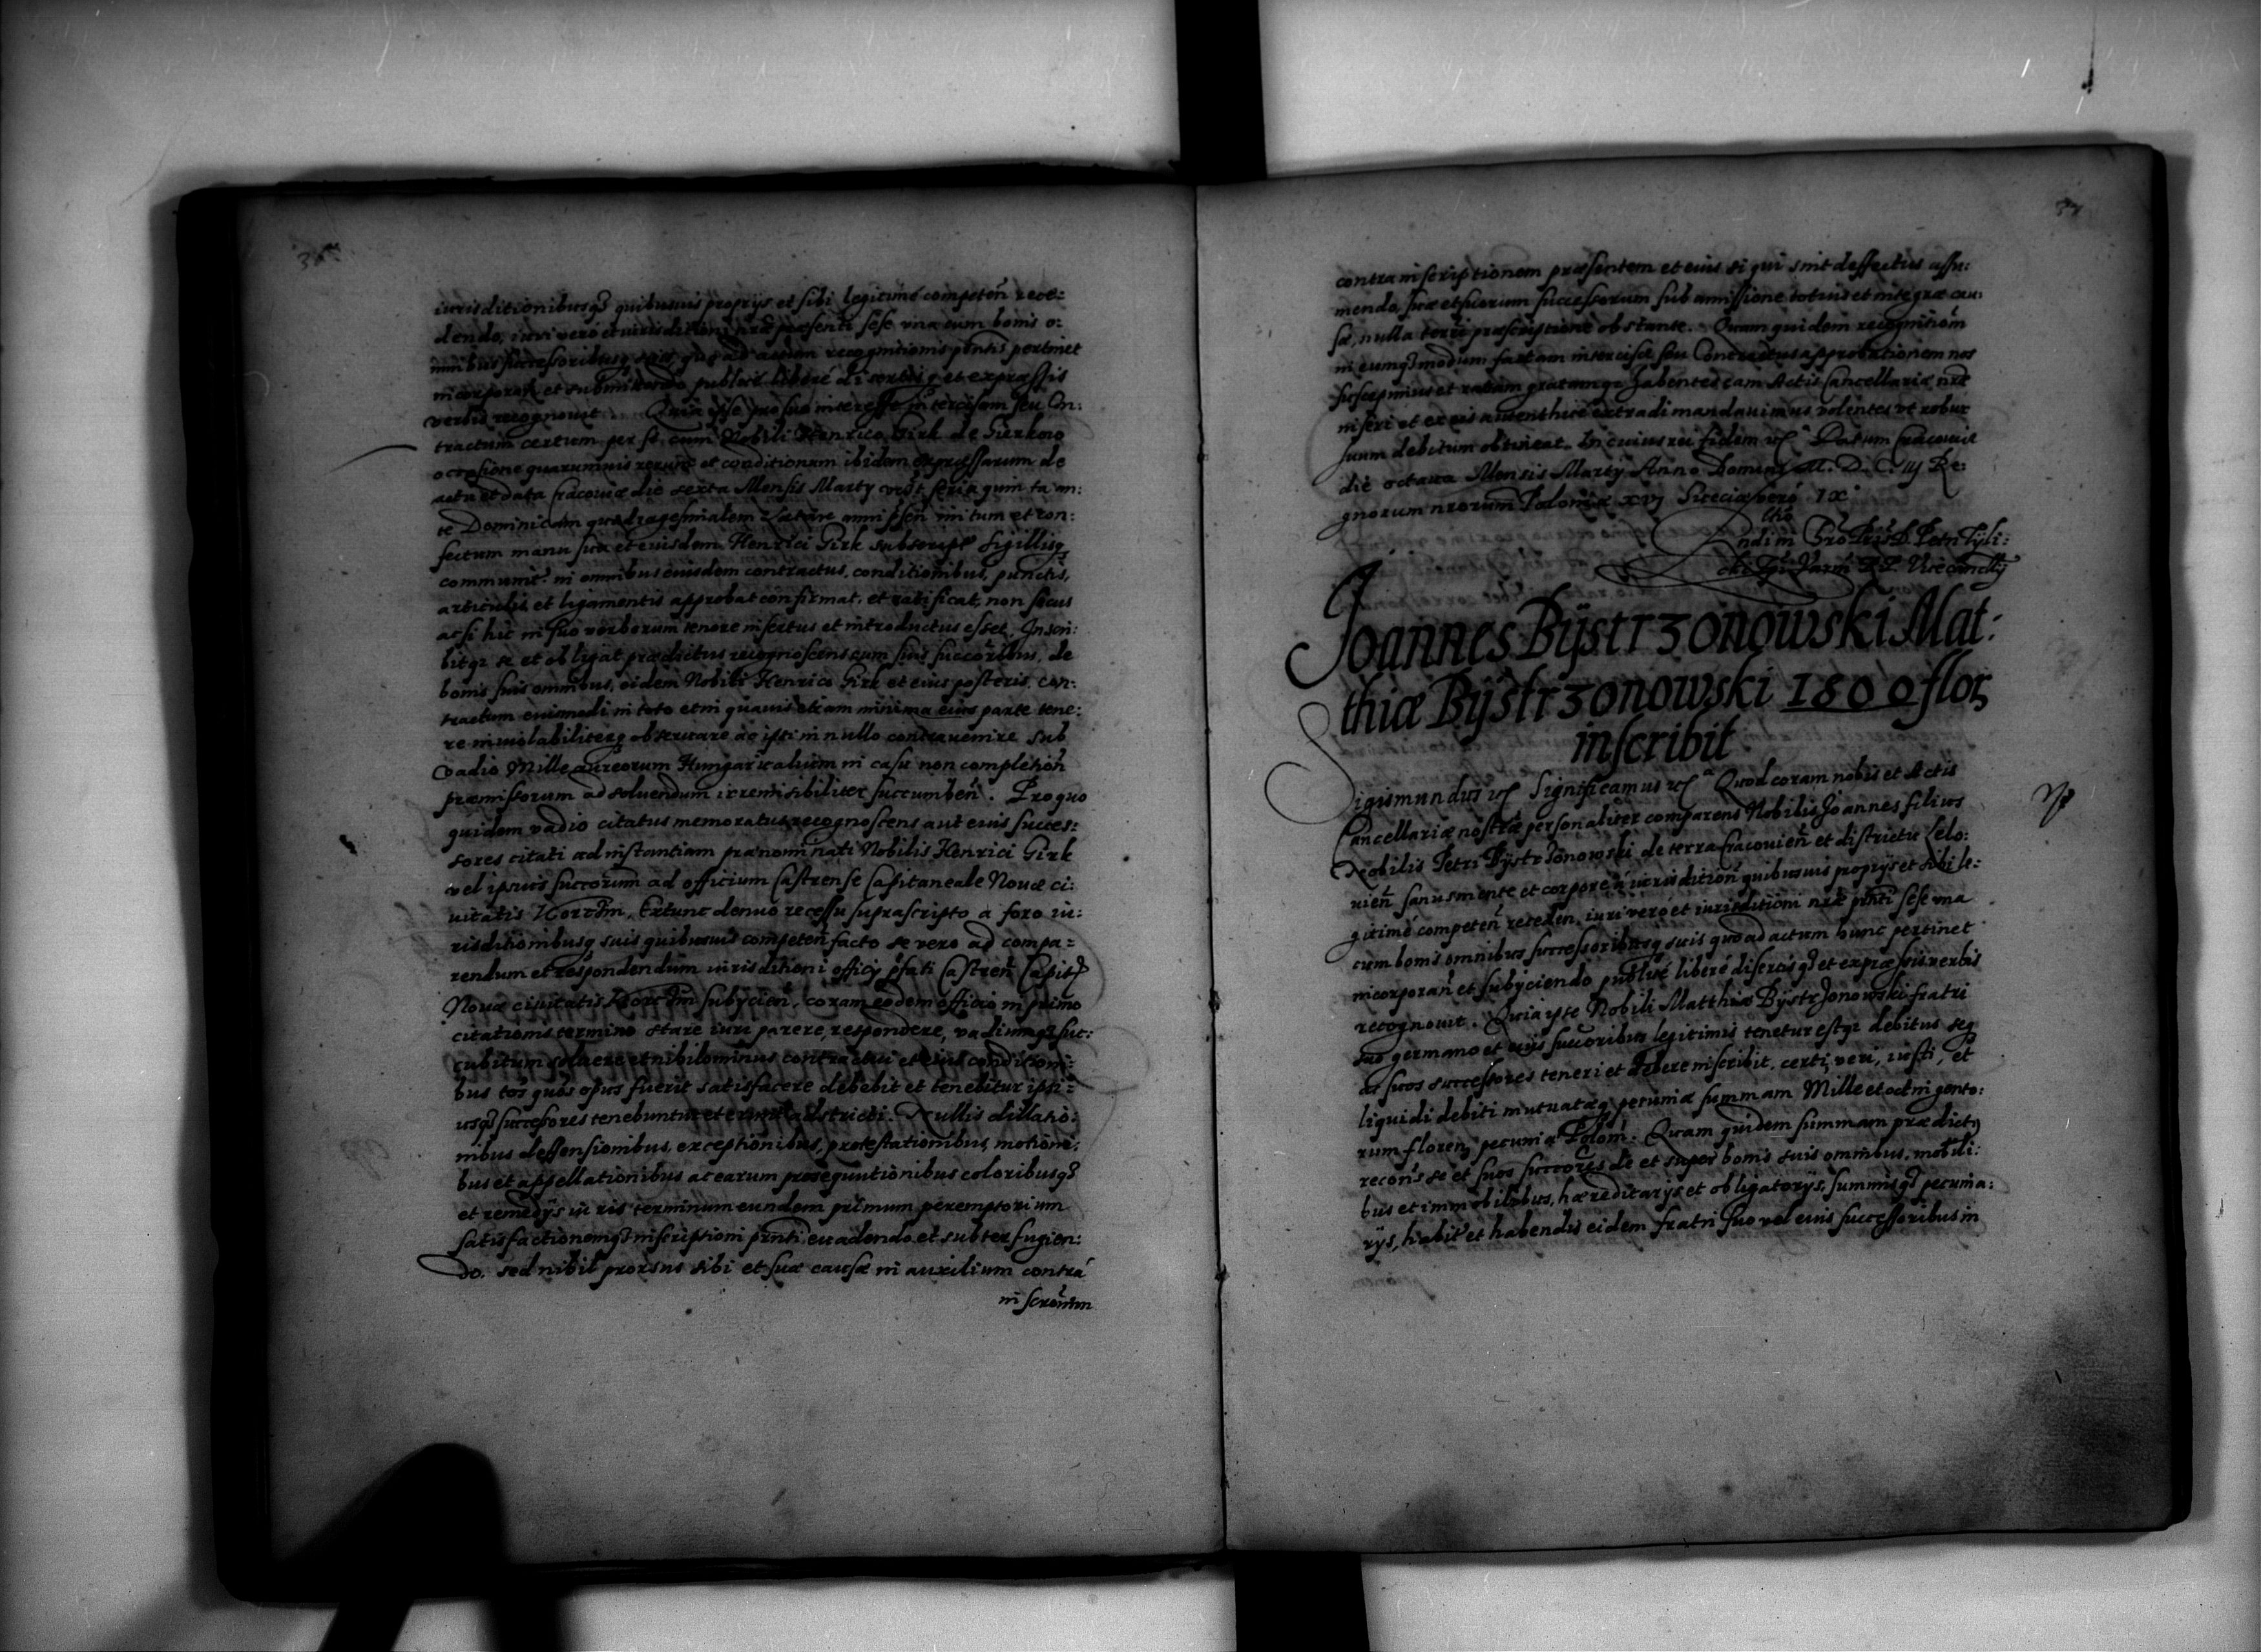 iurisditionibusq3 quibusuis proprijs et sibi legitimé competeñ rece:
dendo, iuri veró et iurisditioni nrae praesenti sese vna cum bonis o:
mnibus successoribusq suis quo ad actum recognitionis pñtis pertinet
incorporañ et submittendo publicé liberé disertisq et expraessis
verbis recognouit. Quia ipse pro suo interesse intercisam seu Con:
tractum certum per se cum Nobili Henrico Girk de Gierkno
occasione quarumuis rerum et conditionum ibidem expraessarum de
actu et data Cracouiae die sexta Mensis Martij feria quinta an:
te Dominicam quadragesimalem Laetare anni pñtis initum et con:
fectum manu sua et eiusdem Henrici Girk subscript sigillisq
communit in omnibus eiusdem contractus, conditionibus, punctis,
articulis et ligamentis approbat confirmat, et ratificat, non secus
ac si hic in suo verborum tenore insertus et introductus esset. Inscri:
bitq3 se et obligat praedictus recognoscens cum suis succoribus, de
bonis suis omnibus, eidem Nobili Henrico Girk et eius posteris, con:
tractum eiusmodi in toto et in quauis etiam minima eius parte tene:
re inuiolabiliterq obseruare ac ipsi in nullo contrauenire sub
vadio Mille aureorum Hungaricalium in casu non completioñ
praemissorum ad soluendum irremisibiliter succumbeñ. Pro quo
quidem vadio citatus memoratus recognoscens aut eius succes:
sores citati ad instantiam praenominati Nobilis Henrici Girk
vel ipsius succorum ad officium Castrense Capitaneale Nouae ci:
uitatis Korczin, Extunc denuo recessu suprascripto a foro iu:
risditionibusq suis quibusuis competeñ facto se vero ad compa:
rendum et respondendum iurisditioni officij pfati Castreñ Capit
Nouae ciuitatis Korczin subijcieñ, coram eodem officio in primo
citationis termino stare iuri parere, respondere, vadiumq3 suc:
cubitum soluere et nihilominus contractui et eius conditioni:
bus tos quos opus fuerit satisfacere debebit et tenebitur ipsi:
usq3 succesores tenebuntur et erunt adstricti. Nullis dillatio:
nibus deffensionibus, exceptionibus, protestationibus, motioni:
bus et appellationibus ac earum prosequutionibus coloribusq3
et remedijs iuris terminum eundem primum peremptorium
satisfactionemq3 inscriptioni pñti euadendo et subterfugien:
do. sed nihil prorsus sibi et suae causae in auxilium contra
inscrõnem
37
contra inscriptionem praesentem et eius si qui sint deffectus assu:
mendo, suae et suorum successorum sub amissione totius et integrae cau:
sae, nulla terrae praescriptione obstante. Quam quidem recognitionem
in eumq3 modum factam intercisae seu Contractus approbationem nos
suscepimus et ratam gratamq3 habentes eam Actis Cancellariae nrae
inseri et ex eis authenthicé extradi mandauimus volentes vt robur
suum debitum obtineat. In cuius rei fidem etc Datum Cracouiae
die octaua Mensis Martij Anno Domini M. D. C. iij Re:
gnorum nrorum Poloniae xvj Sueciae veró IX
Petri Tÿli:
cki Epi Varm R.P. Vicecancllrij
Joannes Bÿstrzonowski Mat:
thiae Bÿstrzonowski 1800 flor
inscribit
Sigismundus etc Significamus etc Quod coram nobis et Actis
Cancellariae nostrae personaliter comparens Nobilis Joannes filius
Nobilis Petri Bÿstrzonowski de terra Cracouieñ et districtu Lelo:
uieñ sanus mente et corpore á iurisditioñ quibusuis proprijs et sibi le:
gitimé competeñ recedeñ, iuri veró et iurisditioni nrae pñti sese vna
cum bonis omnibus successoribusq suis quo ad actum hunc pertinet
incorporañ et subijciendo publicé liberé disertisq3 et expraessis verbis
recognouit. Quia iste Nobili Matthiae Bÿstrzonowski fratri
suo germano et eius succoribus legitimis tenetur estq3 debitus seq
ac suos successores teneri et debere inscribit, certi, veri, iusti, et
liquidi debiti mutuataeq pecuniae summam Mille et octingento:
rum floreñ pecuniae Poloni. Quam quidem summam praedictq
recoñs se et suos succores de et super bonis suis omnibus, mobili:
bus et immobilibus, haereditarijs et obligatorijs, summisq3 pecunia:
rijs, habit et habendis eidem fratri suo vel eius successoribus in